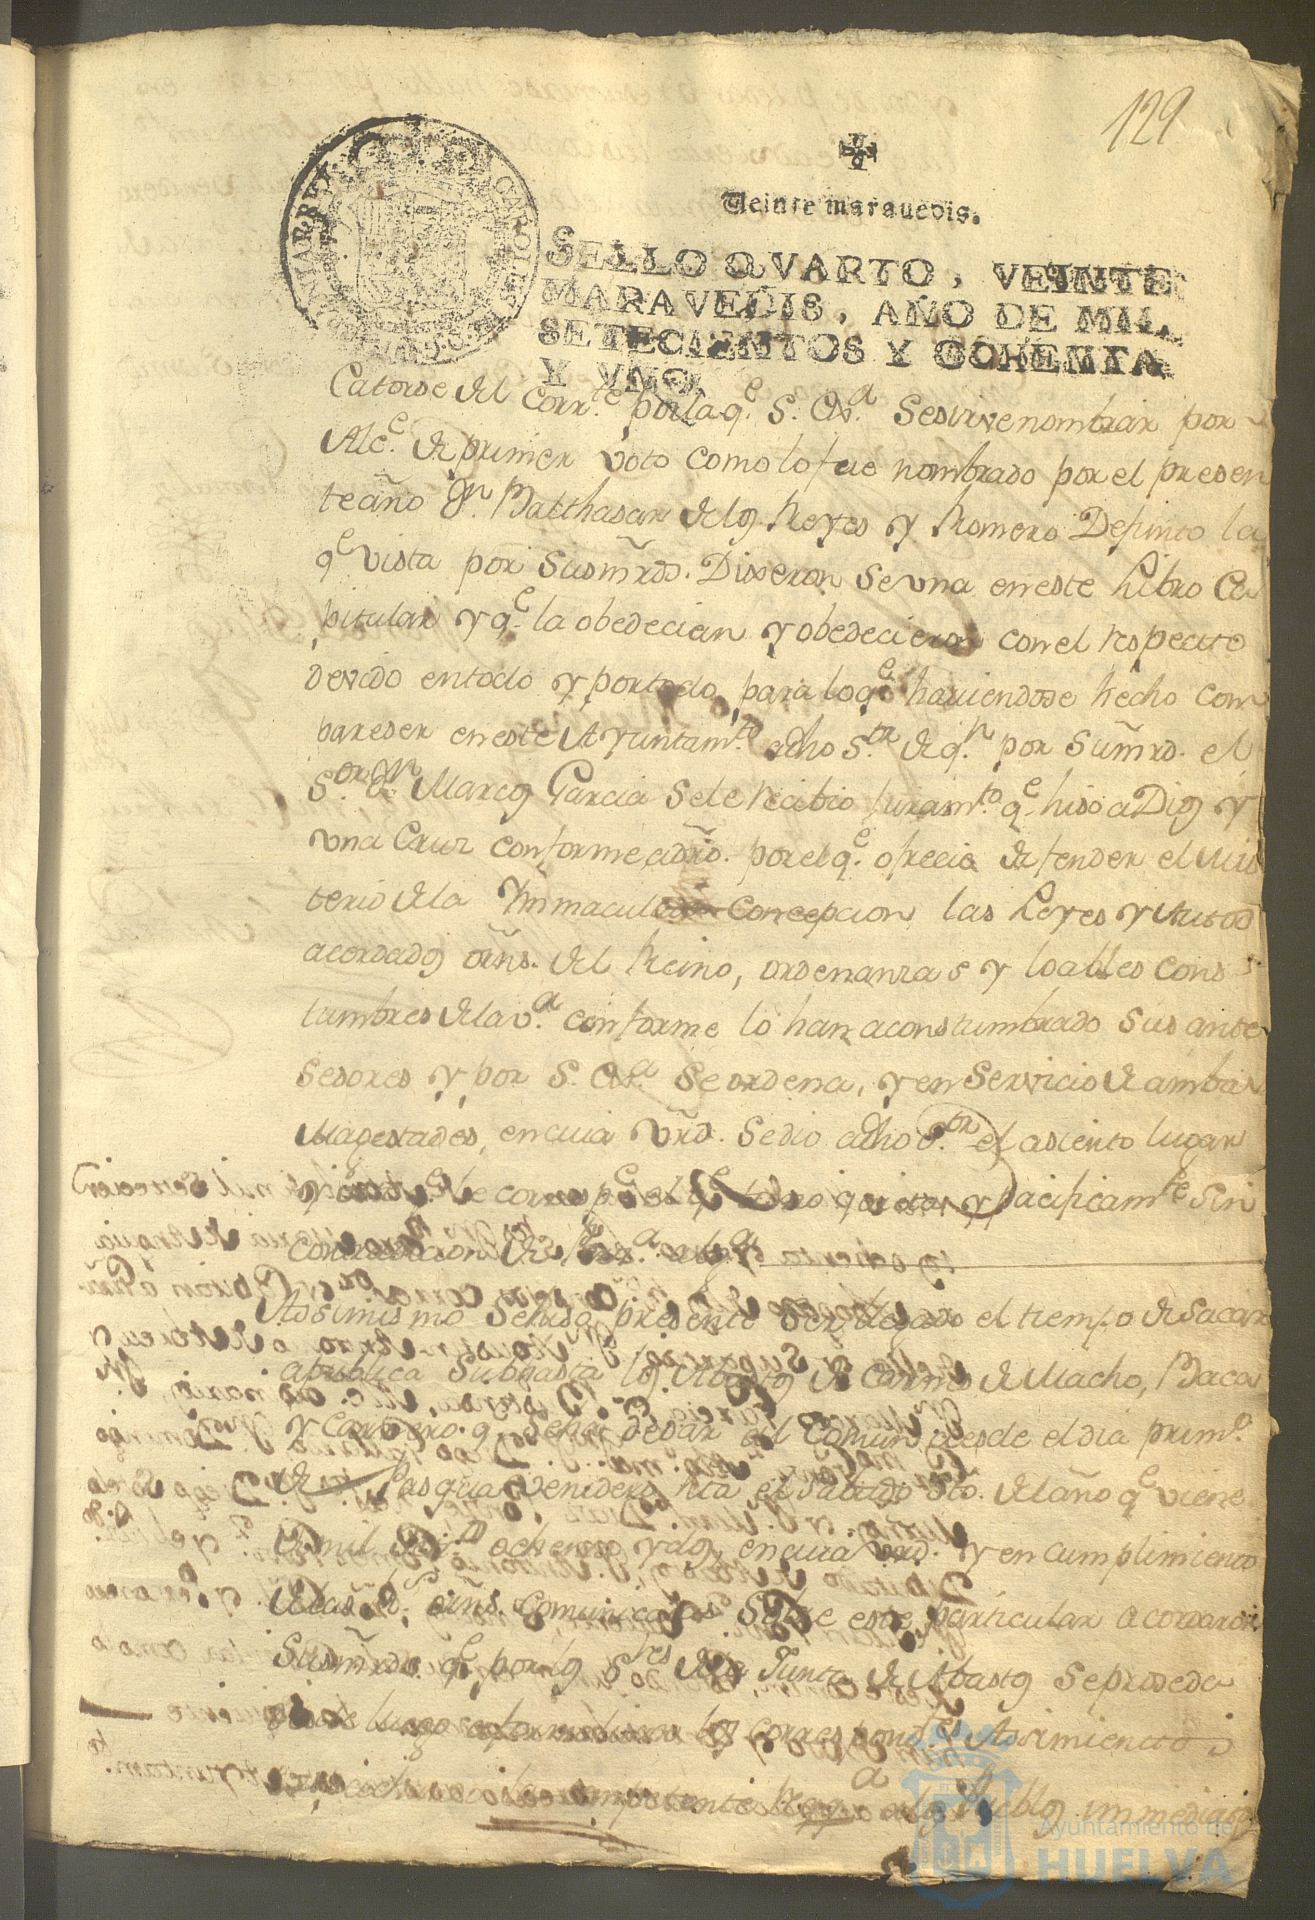 129
Veinte marauedis.
SELLO QVARTO, VEINTE
MARAVEDIS, AÑO DE MIL
SETECIENTOS Y OCHENTA
Y VNO.
Catorse del Corr.te por la q.e S. Ex.a Se sirve nombrar por
Alc.e de primer voto como lo fue nombrado por el presen
te año Dn. Balthasar de los Reyes y Romero Depinto la
q.e vista por Susmrds. Dixeron Se una en este Libro Ca
pitular y q.e la obedecian y obedecieron con el respecto
devido en todo y por todo, para lo q.e haviendose hecho com
pareser en este Ayuntam.to dho S.or de q.n por Sumrd. el
S.or Dn. Marcos Garcia Sele recibio Juram.to q.e hiso a Dios y
una Cruz conforme a dro. por el q.e ofrecio defender el Mis
terio de la Immaculada Concepcion, las Leyes y Autos
acordados del Reino, ordenanzas y loables cons
tumbres de la v.a conforme lo han aconstumbrado Sus ante
sesores y por S. Ex.a Se ordena, y en Servicio de ambas
Magestades, en cuia Vrd. Se dio a dho S.or el asiento lugar
q.e le corresp.e el q.e tomo quieta y pacificam.te Sin
contradiccion de
Assimismo Se hiso presente Ser llegado el tiempo de Sacar
a publica Subhasta los Abastos de Carnes de Macho, Baca
y Carnero q.e Se ha de dar al Comun desde el dia prim.o
de Pasqua venidero hta el Sabado Sto. del año q.e viene
de mil ochenta y dos, en cuia vrd. y en cumplimiento
de las Comunicadas Sobre este particular acordaron
Susmrds. q.e por los S.res de la Junta de Abastos Se proseda
desde luego los correspond.tes
a los Pueblos immedia
Ayuntamiento de
HUELVA